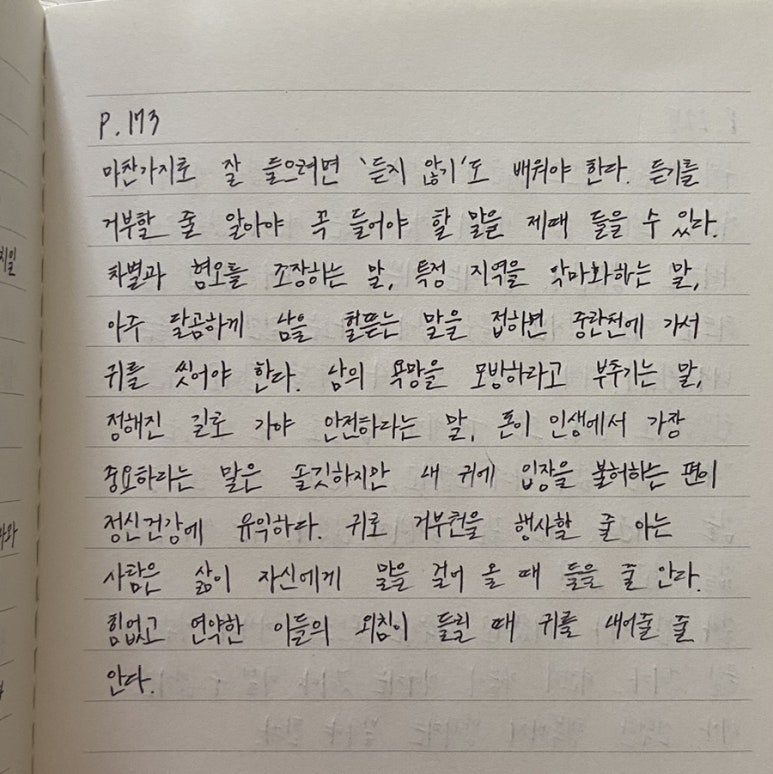 P. 173
마찬가지로 잘 들으려면 '듣지 않기'도 배워야 한다. 듣기를
거부할 줄 알아야 꼭 들어야 할 말을 제때 들을 수 있다.
차별과 혐오를 조장하는 말, 특정 지역을 악마화하는 말,
아주 달콤하게 남을 헐뜯는 말을 접하면 중랑천에 가서
귀를 씻어야 한다. 남의 욕망을 모방하라고 부추기는 말,
정해진 길로 가야 안전하다는 말, 돈이 인생에서 가장
중요하다는 말은 솔깃하지만 내 귀에 입장을 불허하는 편이
정신건강에 유익하다. 귀로 거부권을 행사할 줄 아는
사람은 삶이 자신에게 말을 걸어 올 때 들을 줄 안다.
힘없고 연약한 이들의 외침이 들릴 때 귀를 내어줄 줄
안다.